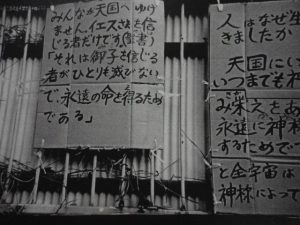 みんなが天国へゆけ
ません。イエスさまを信
じる者だけです。(聖書)
「それは御子を信じる
者がひとりも滅びない
で、永遠の命を得るため
である」
人はなぜ生
きましたか
天国にい
いつまでも神
み栄えをあ
永遠に神様
するためで
と全宇宙は
神様によって